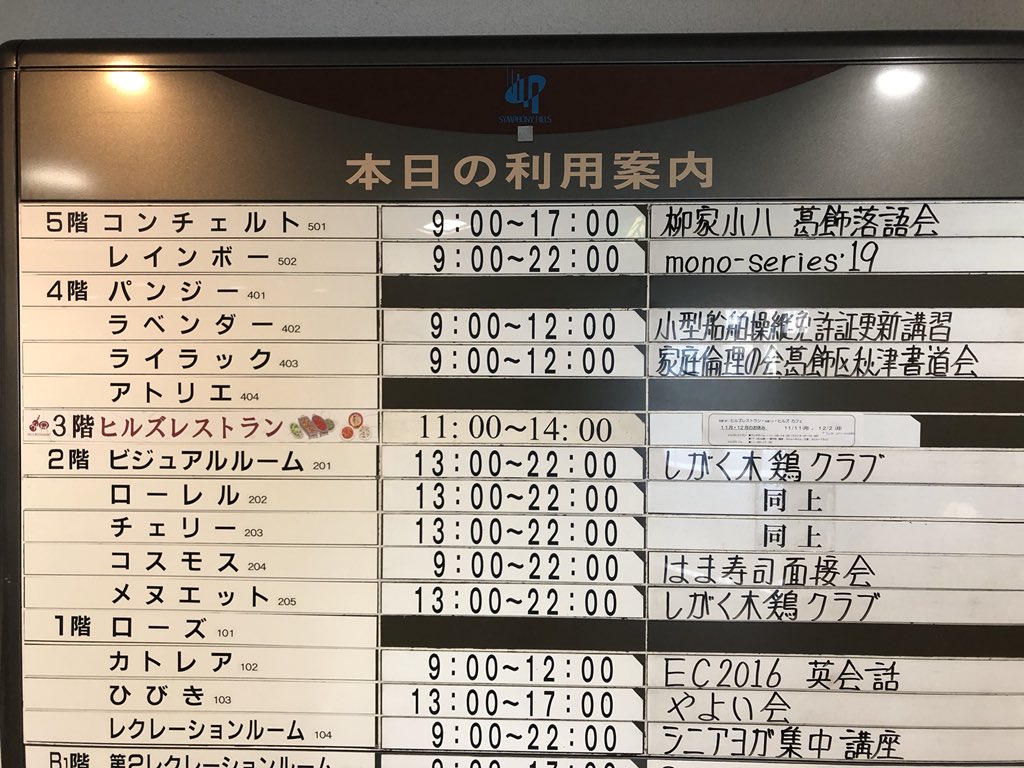 SYMPHONY HILLS
本日の利用案内
5階 コンチェルト 501 9:00~17:00 柳家小八 葛飾落語会
レインボー 502 9:00~22:00 mono-series'19
4階 パンジー 401
ラベンダー 402 9:00~12:00 小型船舶操縦免許証更新講習
ライラック 403 9:00~12:00 家庭倫理の会葛飾区秋津書道会
アトリエ 404
3階 ヒルズレストラン 11:00~14:00 11/11(月)、12/2(月)
2階 ビジュアルルーム 201 13:00~22:00 しがく木鶏クラブ
ローレル 202 13:00~22:00 同上
チェリー 203 13:00~22:00 同上
コスモス 204 9:00~22:00 はま寿司面接会
メヌエット 205 13:00~22:00 しがく木鶏クラブ
1階 ローズ 101
カトレア 102 9:00~12:00 EC2016 英会話
ひびき 103 13:00~17:00 やよい会
レクレーションルーム 104 9:00~22:00 シニアヨガ集中講座
B1階 第2レクレーションルーム 9:00~17:00